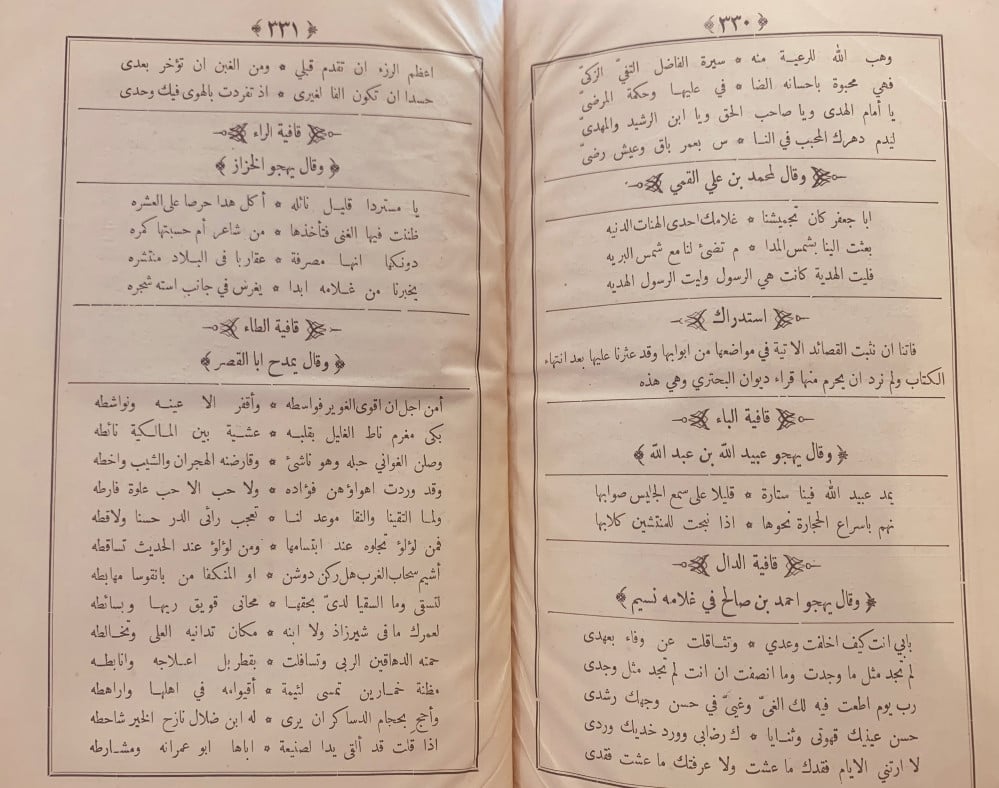 ﴿ ٣٣٠ ﴾
وهب الله للرعية منه * سيرة الفاضل التقيّ الزكيّ
فهي محبوة باحسانه الضا * في عليها وحكمة المرضيّ
يا أمام الهدى ويا صاحب الحق ويا ابن الرشيد والمهدىّ
ليدم دهرك المحبب في النا * س بعمر باق وعيش رضىّ
وقال لمحمد بن علي القمي
ابا جعفر كان تجميشنا * غلامك احدى الهنات الدنيه
بعثت الينا بشمس المدا * م تضئ لنا مع شمس البريه
فليت الهدية كانت هي الرسول وليت الرسول الهديه
استدراك
فاتنا ان نثبت القصائد الاتية في مواضعها من ابوابها وقد عثرنا عليها بعد انتهاء
الكتاب ولم نرد ان يحرم منها قراء ديوان البحتري وهي هذه
قافية الباء
﴿ وقال يهجو عبيد الله بن عبد الله ﴾
يمد عبيد الله فينا ستارة * قليلا على سمع الجليس صوابها
نهم باسراع الحجارة نحوها * اذا نبحت للمنتشين كلابها
قافية الدال
﴿ وقال يهجو احمد بن صالح في غلامه نسيم ﴾
بابي انت كيف اخلفت وعدي * وتثاقلت عن وفاء بعهدى
لم تجد مثل ما وجدت وما انصفت ان انت لم تجد مثل وجدى
رب يوم اطعت فيه لك الغىّ وغيىّ في حسن وجهك رشدى
حسن عينيك قهوتى وثنايا * ك رضابى وورد خديك وردى
لا ارتنى الايام فقدك ما عشت ولا عرفتك ما عشت فقدى
﴿ ٣٣١ ﴾
اعظم الرزء ان تقدم قبلي * ومن الغبن ان تؤخر بعدى
حسدا ان تكون الفا لغيرى * اذ تفردت بالهوى فيك وحدى
قافية الراء
﴿ وقال يهجو الخزاز ﴾
يا مستردا قليل نائله * أكل هدا حرصا على العشره
ظننت فيها الغنى فتأخذها * من شاعر أم حسبتها كمره
دونكها انها مصرفة * عقاربا فى البلاد منتشره
يخبرنا من غلامه ابدا * يغرس في جانب استه شجره
قافية الطاء
﴿ وقال يمدح ابا القصر ﴾
أمن اجل ان اقوى الغوير فواسطه * وأقفر الا عينه ونواشطه
بكى مغرم ناط الغليل بقلبه * عشية بين المالكية نائطه
وصلن الغواني حبله وهو ناشئ * وقارضنه الهجران والشيب واخطه
وقد وردت اهواؤهن فؤاده * ولا حب الا حب علوة فارطه
ولما التقينا والنقا موعد لنا * تعجب رائى الدر حسنا ولاقطه
فمن لؤلؤ تجلوه عند ابتسامها * ومن لؤلؤ عند الحديث تساقطه
أشيم سحاب الغرب هل ركن دوشن * او المنكفا من بانقوسا مهابطه
لتسقى وما السقيا لدىّ بحقها * محانى قويق ريها وبسائطه
لعمرك مافى شيرزاذ ولا ابنه * مكان تدانيه العلى وتخالطه
حمته الدهاقين الربى وتسافلت * بقطربل اعلاجه وانابطه
مظنة خمارين تمسى لئيمة * أقيوامه في اهلها واراهطه
وأحجِ بحجام الدساكر ان يرى * له ابن ضلال نازح الخير شاحطه
اذا قلت قد ألقى يدا لصنيعة * اباها ابو عمرانه ومشارطه